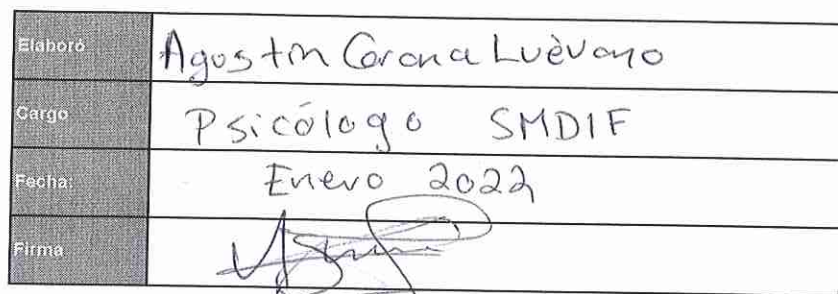 Elaboró Agustin Corona Luèvano
Cargo Psicólogo SMDIF
Fecha: Enero 2022
Firma